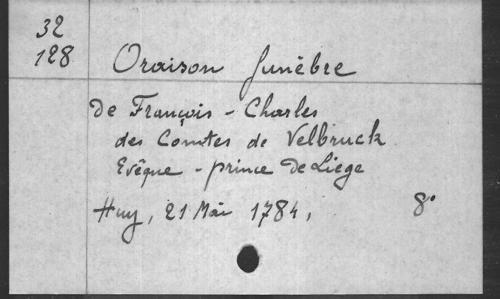 32
128
Oraison funèbre
de François - Charles
des Comtes de Velbruck
Evêque - prince de Liège
Huy, 21 Mai 1784, 8°